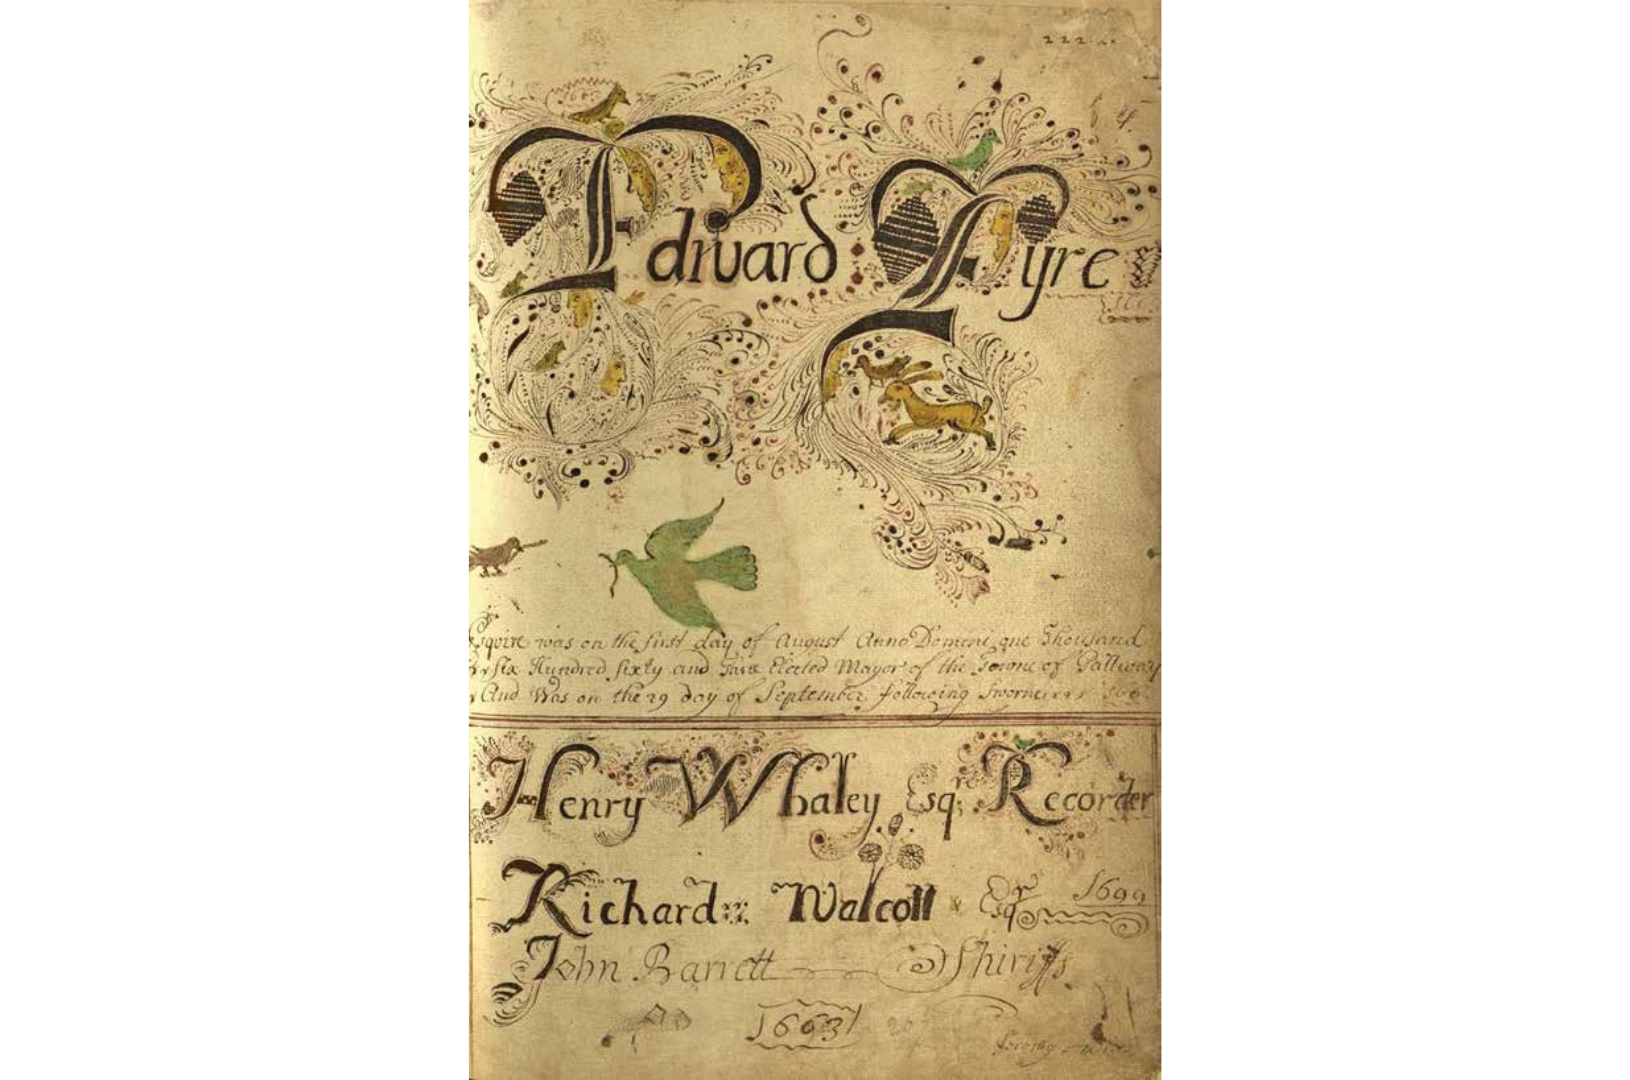 222
Edward: Eyre
Esquire was on the first day of August Anno Domini one Thousand
Six Hundred sixty and Elected Mayor of the Towne of Gallway
And Was on the 29 day of September following Sworne
Henry Whaley Esqr Recorder
Richard Walcott Esqr 1699
John Barrett Shiriffs
1663